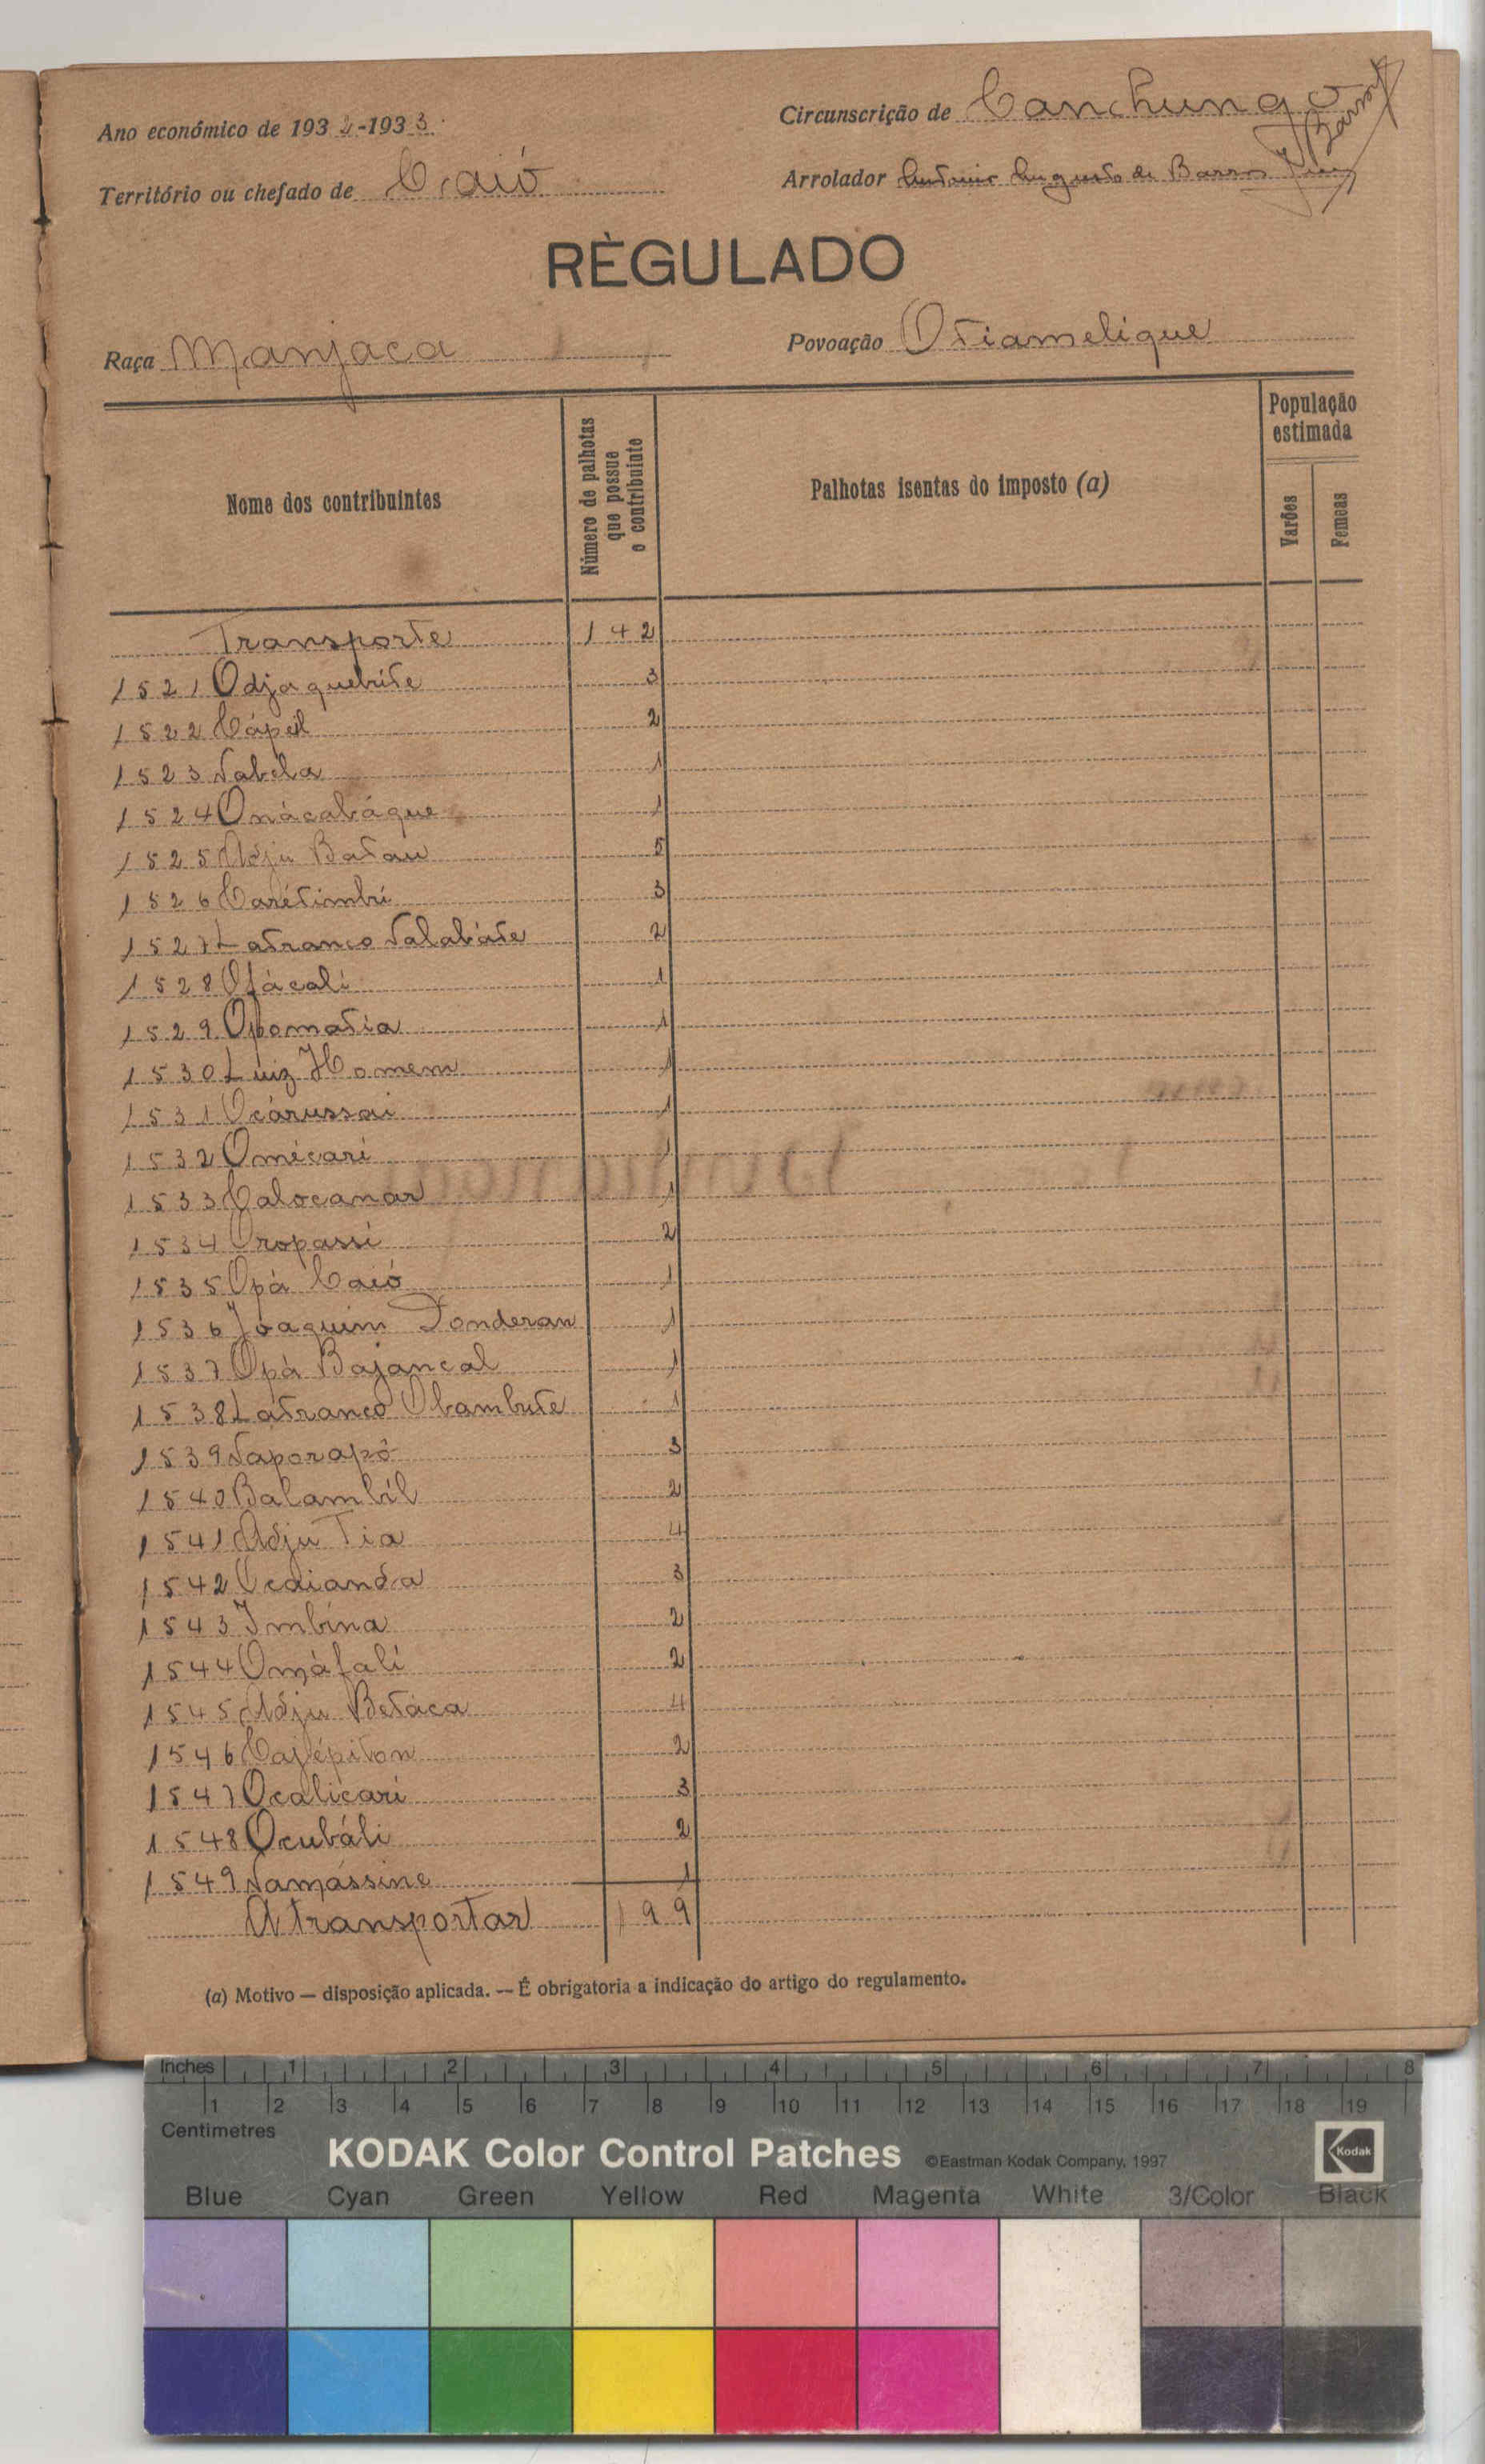 Ano económico de 1932-1933
Circunscrição de Canchungo
Território ou chefado de Caió
Arrolador António Augusto de Barros
RÈGULADO
Raça Manjaca
Povoação Otiamelique
Nome dos contribuintes
Número de palhotas que possue o contribuinte
Palhotas isentas do imposto (a)
População estimada
Varões
Femeas
Transporte 142
1521 Odjaquebúte 3
1522 Cápel 2
1523 Nabela 1
1524 Onácabáque 1
1525 Adju Batau 5
1526 Carétimbri 3
1527 Latranco Nalabáte 2
1528 Ofácali 1
1529 Opomatia 1
1530 Luiz Homem 1
1531 Ocárussai 1
1532 Omícari 1
1533 Calocanar 1
1534 Oropassi 2
1535 Opá Caió 1
1536 Joaquim Tonderan 1
1537 Opá Bajancal 1
1538 Latranco Obambute 1
1539 Naporapó 3
1540 Balambil 2
1541 Adju Tia 4
1542 Ocaianda 3
1543 Imbina 2
1544 Omáfali 2
1545 Adju Betáca 4
1546 2
1547 Ocalicari 3
1548 Ocubáli 2
1549 Namássine 1
A transportar 199
(a) Motivo — disposição aplicada. — É obrigatoria a indicação do artigo do regulamento.
Inches 1 2 3 4 5 6 7 8
1 2 3 4 5 6 7 8 9 10 11 12 13 14 15 16 17 18 19
Centimetres
KODAK Color Control Patches ©Eastman Kodak Company, 1997 Kodak
Blue Cyan Green Yellow Red Magenta White 3/Color Black